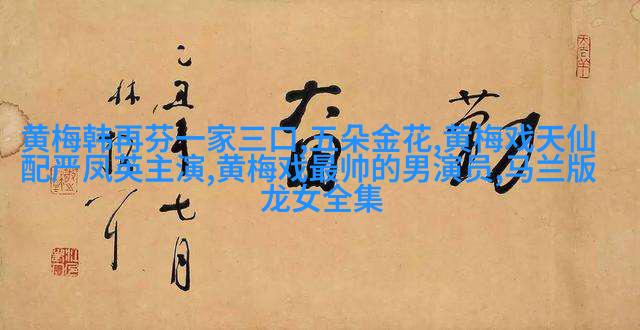 勤奋
乙丑年七月
黄梅韩再芬一家三口,五朵金花,黄梅戏天仙
配严凤英主演,黄梅戏最帅的男演员,马兰版
龙女全集